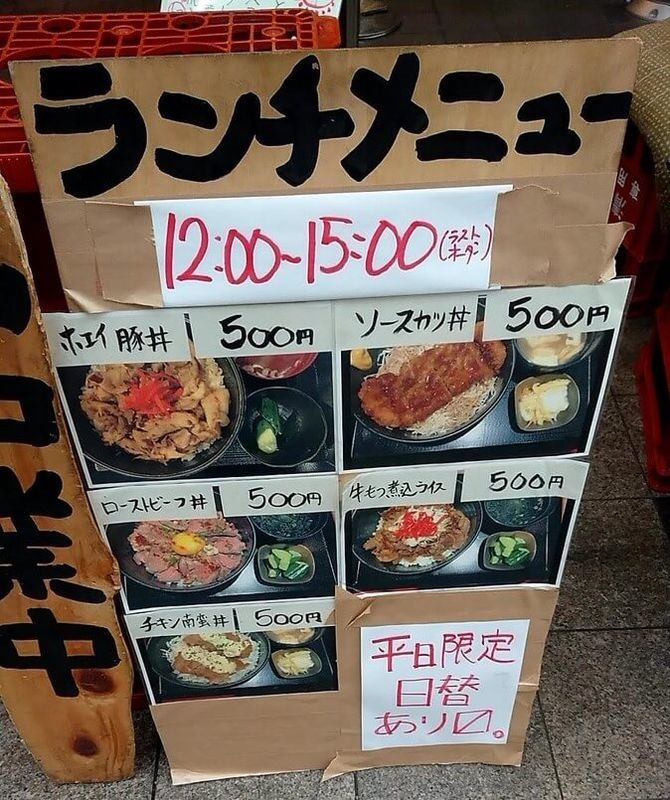 ランチメニュー
12:00~15:00(ラストオーダー)
ホエイ豚丼 500円
ソースカツ丼 500円
ローストビーフ丼 500円
牛もつ煮込ライス 500円
チキン南蛮丼 500円
平日限定
日替
あり〼。
業中